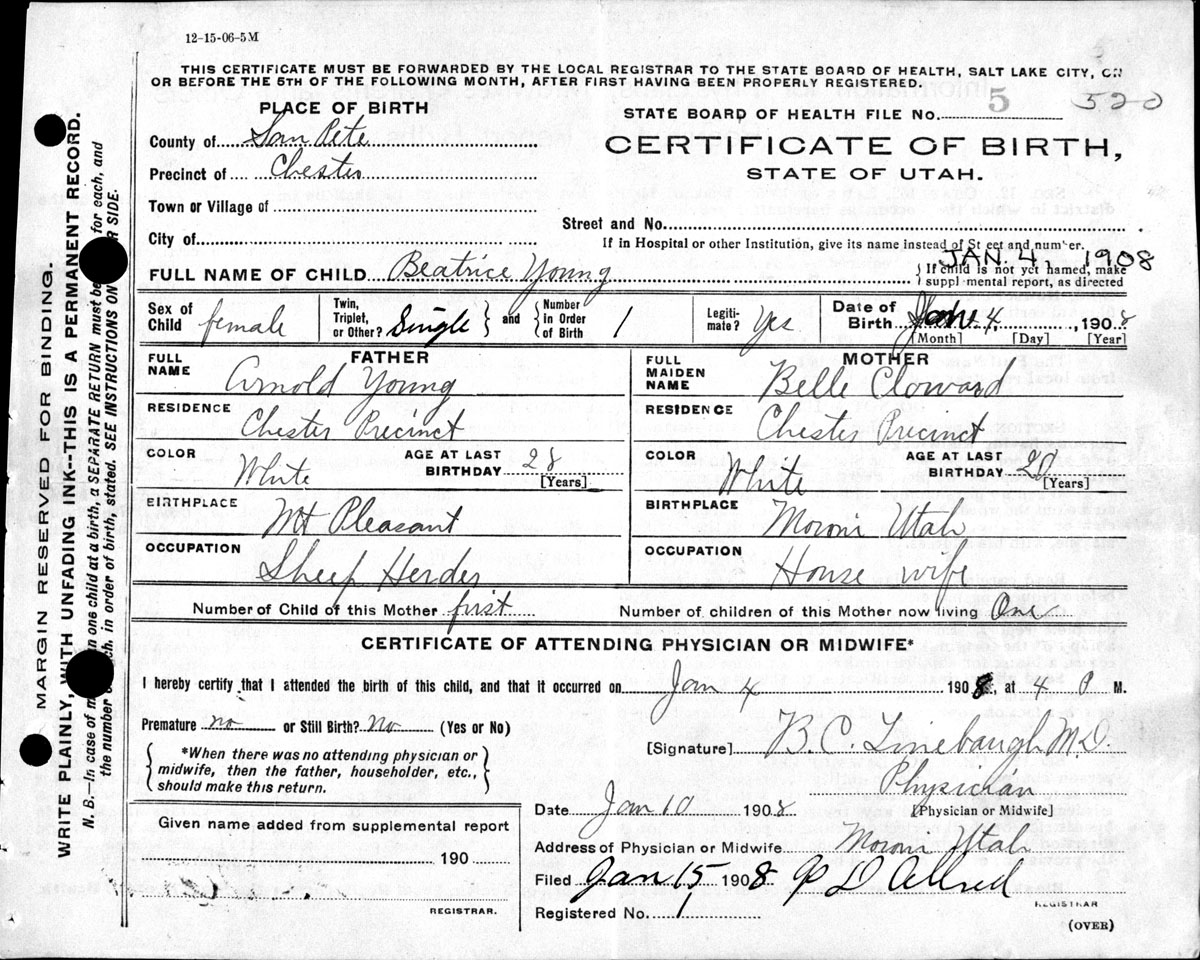 12-15-06-5M
THIS CERTIFICATE MUST BE FORWARDED BY THE LOCAL REGISTRAR TO THE STATE BOARD OF HEALTH, SALT LAKE CITY, ON
OR BEFORE THE 5TH OF THE FOLLOWING MONTH, AFTER FIRST HAVING BEEN PROPERLY REGISTERED.
5 520
PLACE OF BIRTH
STATE BOARD OF HEALTH FILE No.
County of San Pete
CERTIFICATE OF BIRTH,
Precinct of Chester
STATE OF UTAH.
Town or Village of
Street and No.
City of
If in Hospital or other Institution, give its name instead of St eet and number.
JAN. 4 1908
FULL NAME OF CHILD Beatrice Young
{ If child is not yet named, make
suppl mental report, as directed
Sex of Child female
Twin, Triplet, or Other? Single } and { Number In Order of Birth 1
Legiti-mate? Yes
Date of Birth Jan 4, 1908
[Month] [Day] [Year]
FATHER
MOTHER
FULL NAME Arnold Young
FULL MAIDEN NAME Belle Cloward
RESIDENCE Chester Precinct
RESIDENCE Chester Precinct
COLOR White AGE AT LAST BIRTHDAY 28 [Years]
COLOR White AGE AT LAST BIRTHDAY 20 [Years]
BIRTHPLACE Mt Pleasant
BIRTHPLACE Moroni Utah
OCCUPATION Sheep Herder
OCCUPATION House wife
Number of Child of this Mother first
Number of children of this Mother now living One
CERTIFICATE OF ATTENDING PHYSICIAN OR MIDWIFE*
I hereby certify that I attended the birth of this child, and that it occurred on Jan 4 1908, at 4 P M.
Premature no or Still Birth? No (Yes or No)
[Signature] B. C. Linebaugh M.D.
{ *When there was no attending physician or
midwife, then the father, householder, etc.,
should make this return. }
Physician
[Physician or Midwife]
Date Jan 10 1908
Given name added from supplemental report
190
REGISTRAR.
Address of Physician or Midwife Moroni Utah
Filed Jan 15 1908 P D Allred
REGISTRAR
Registered No. 1
(OVER)
MARGIN RESERVED FOR BINDING.
WRITE PLAINLY, WITH UNFADING INK--THIS IS A PERMANENT RECORD.
N. B.—In case of m an one child at a birth, a SEPARATE RETURN must be for each, and
the number ch, in order of birth, stated. SEE INSTRUCTIONS ON R SIDE.